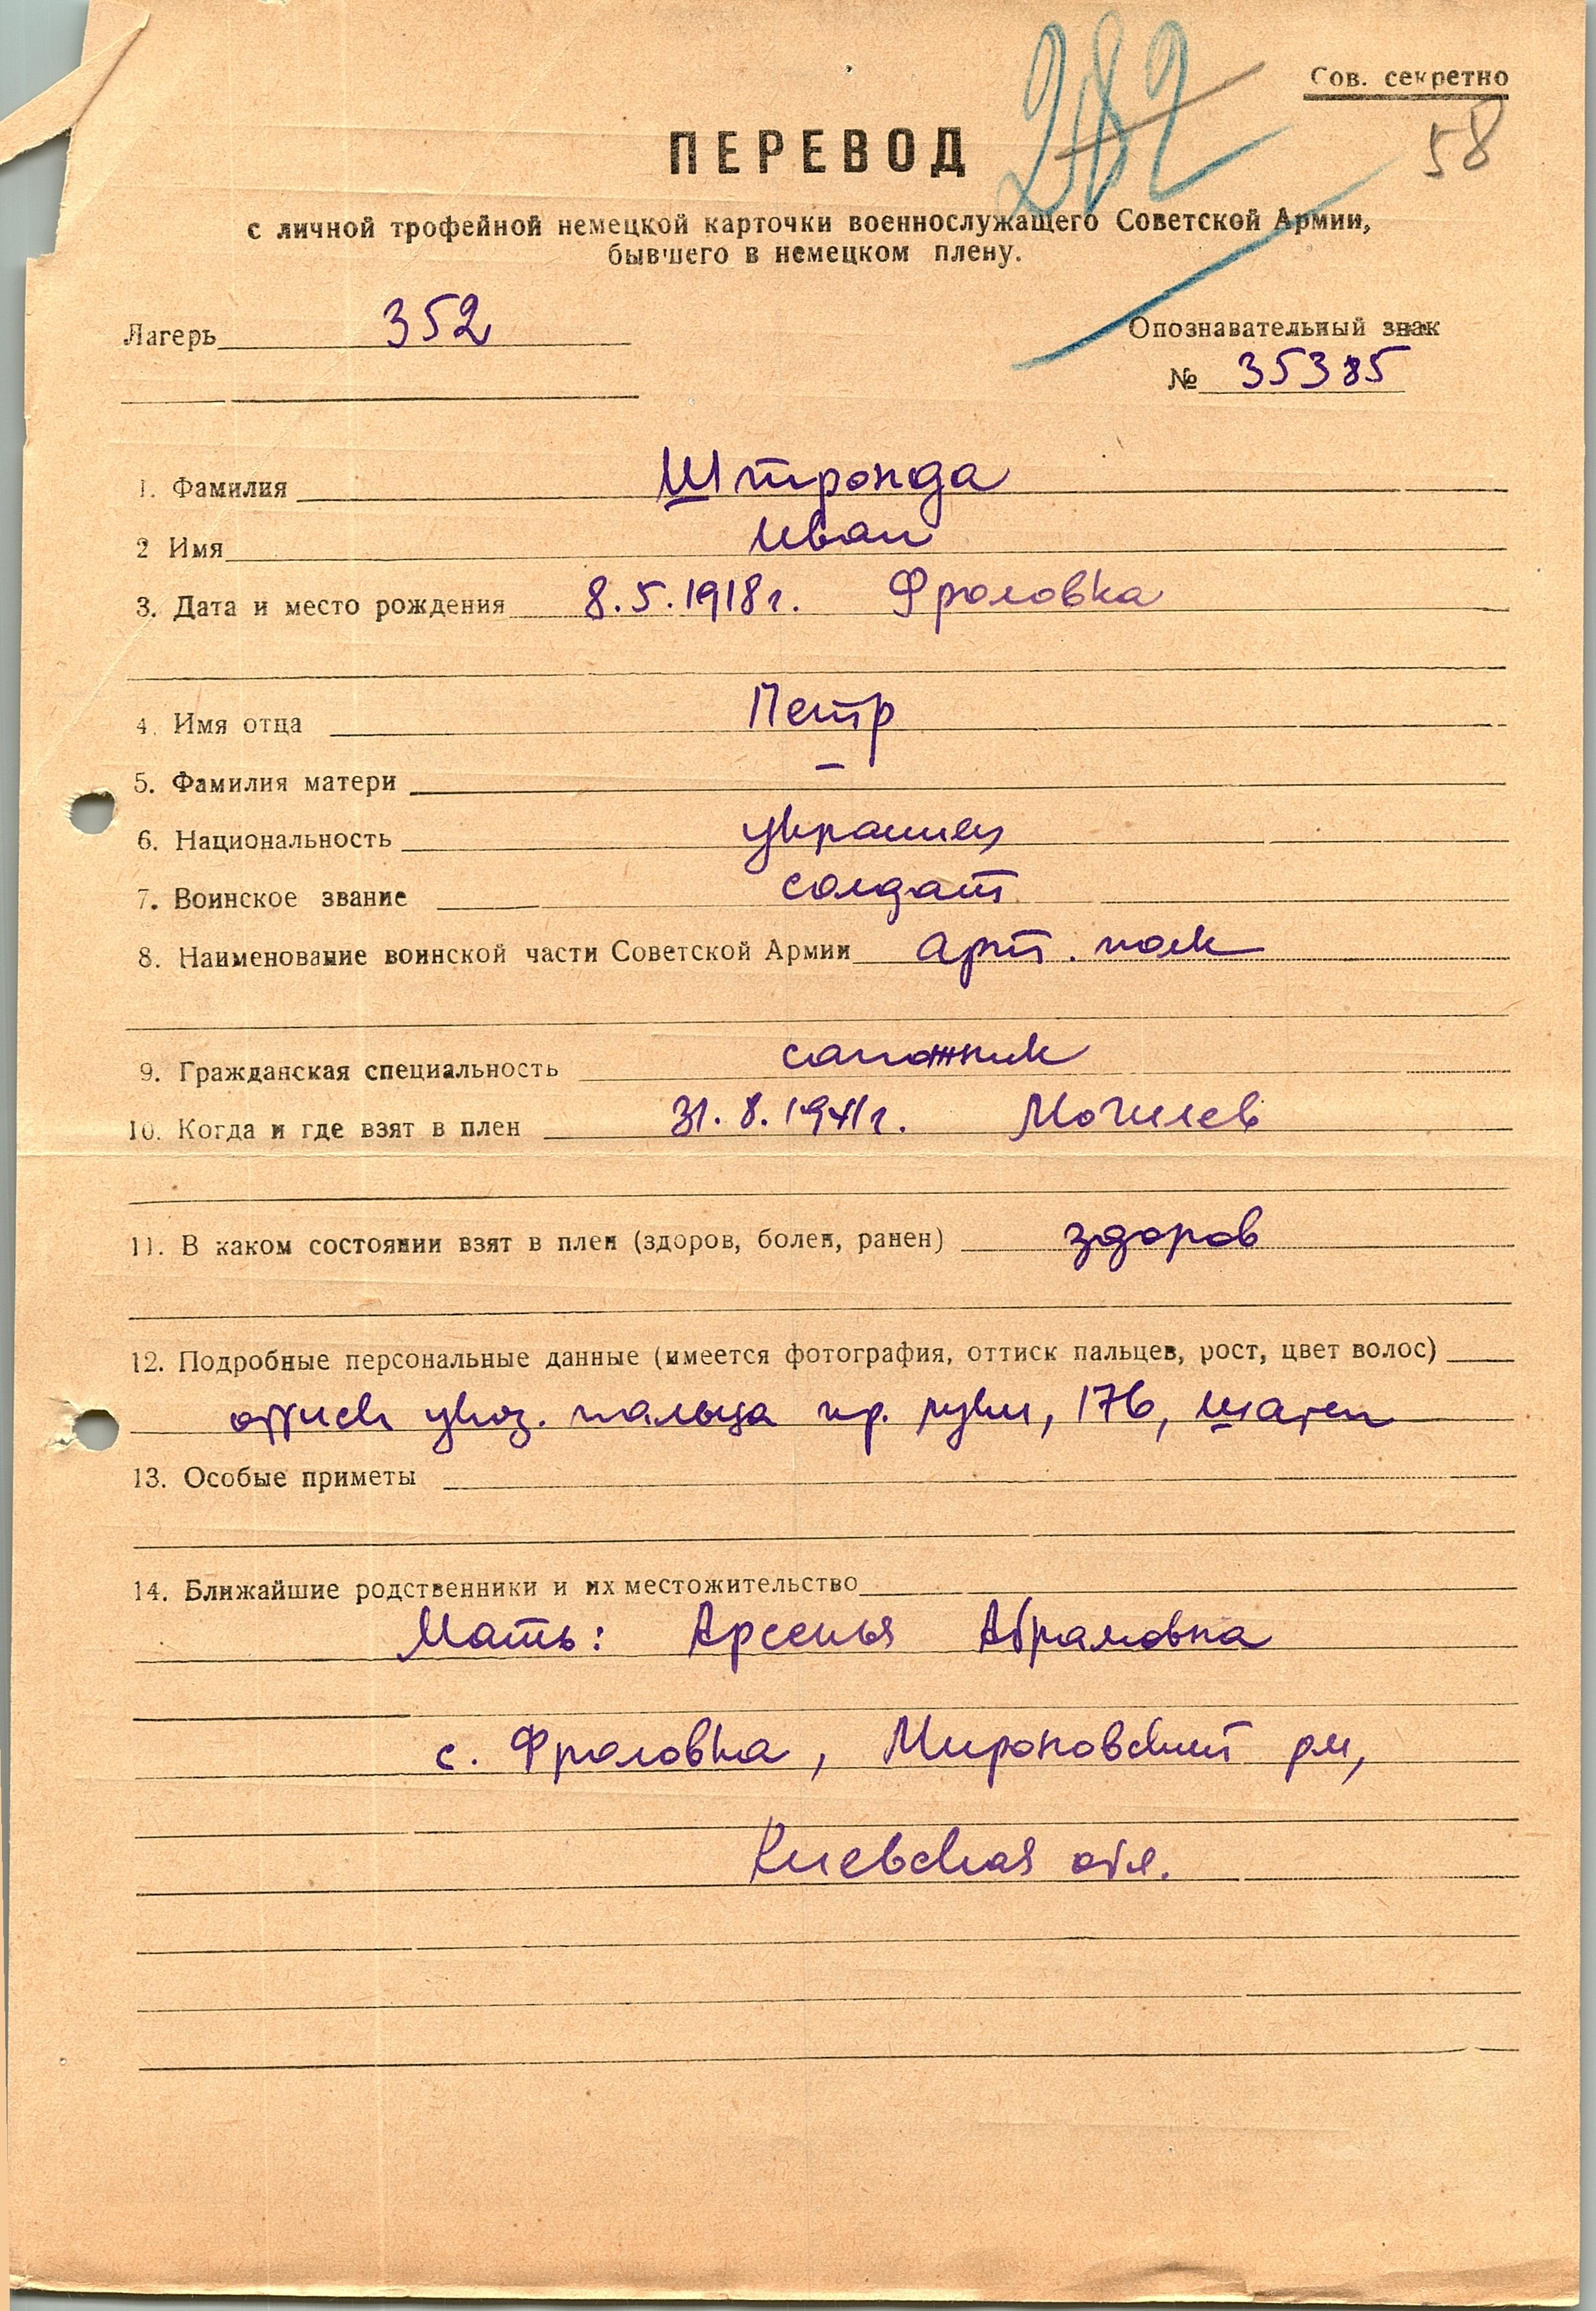 282
Сов. секретно
58
ПЕРЕВОД
с личной трофейной немецкой карточки военнослужащего Советской Армии,
бывшего в немецком плену.
Лагерь 352
Опознавательный знак
№ 35385
1. Фамилия Штронда
2 Имя Иван
3. Дата и место рождения 8.5.1918г. Фроловка
4. Имя отца Петр
5. Фамилия матери –
6. Национальность украинец
7. Воинское звание солдат
8. Наименование воинской части Советской Армии арт. полк
9. Гражданская специальность сапожник
10. Когда и где взят в плен 31.8.1941г. Могилев
11. В каком состоянии взят в плен (здоров, болен, ранен) здоров
12. Подробные персональные данные (имеется фотография, оттиск пальцев, рост, цвет волос)
оттиск указ. пальца пр. руки, 176, шатен
13. Особые приметы
14. Ближайшие родственники и их местожительство
Мать: Арсенья Абрамовна
с. Фроловка, Мироновский рн,
Киевская обл.